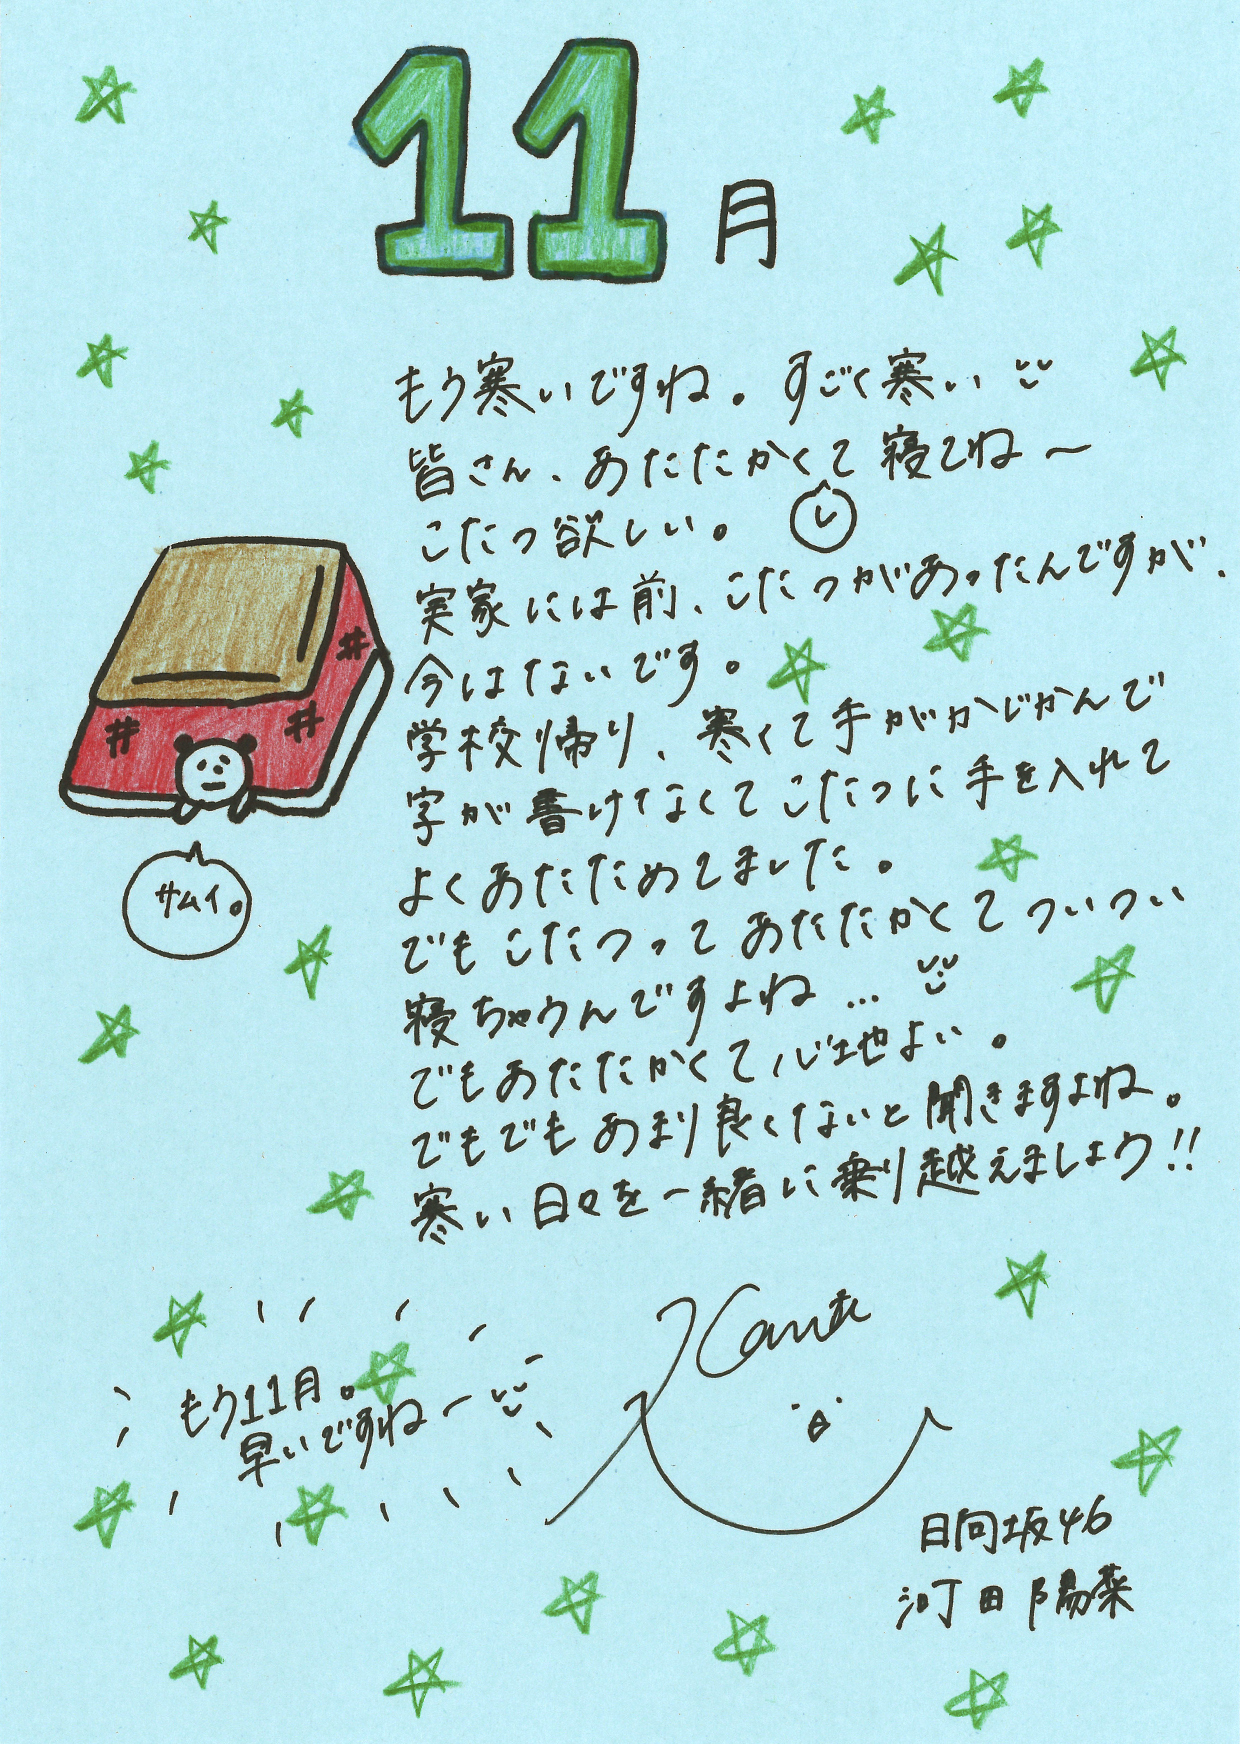 11月
もう寒いですね。すごく寒い
皆さん、あたたかくて寝てね〜
し
こたつ欲しい。
実家には前、こたつがあったんですが、
今はないです。
学校帰り、寒くて手がかじかんで
字が書けなくてこたつに手を入れて
よくあたためてました。
でもこたつってあたたかくてついつい
寝ちゃうんですよね…
でもあたたかくて心地よい。
でもでもあまり良くないと聞きますよね。
寒い日々を一緒に乗り越えましょう!!
サムイ。
もう11月。
早いですねー
日向坂46
河田陽菜